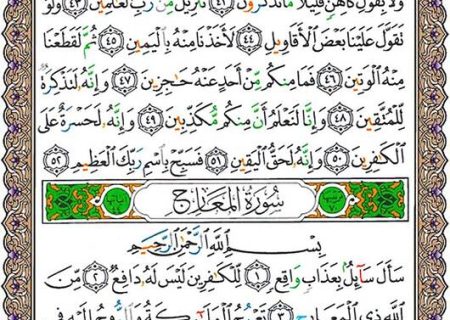 ولا بقول كاهن قليلا ما تذكرون ٤٢ تنزيل من رب العالمين ٤٣ ولو
تقول علينا بعض الأقاويل ٤٤ لأخذنا منه باليمين ٤٥ ثم لقطعنا
منه الوتين ٤٦ فما منكم من أحد عنه حاجزين ٤٧ وإنه لتذكرة
للمتقين ٤٨ وإنا لنعلم أن منكم مكذبين ٤٩ وإنه لحسرة على
الكافرين ٥٠ وإنه لحق اليقين ٥١ فسبح باسم ربك العظيم ٥٢
سورة المعارج
بسم الله الرحمن الرحيم
سأل سائل بعذاب واقع ١ للكافرين ليس له دافع ٢ من
الله ذي المعارج ٣ تعرج الملائكة والروح إليه في